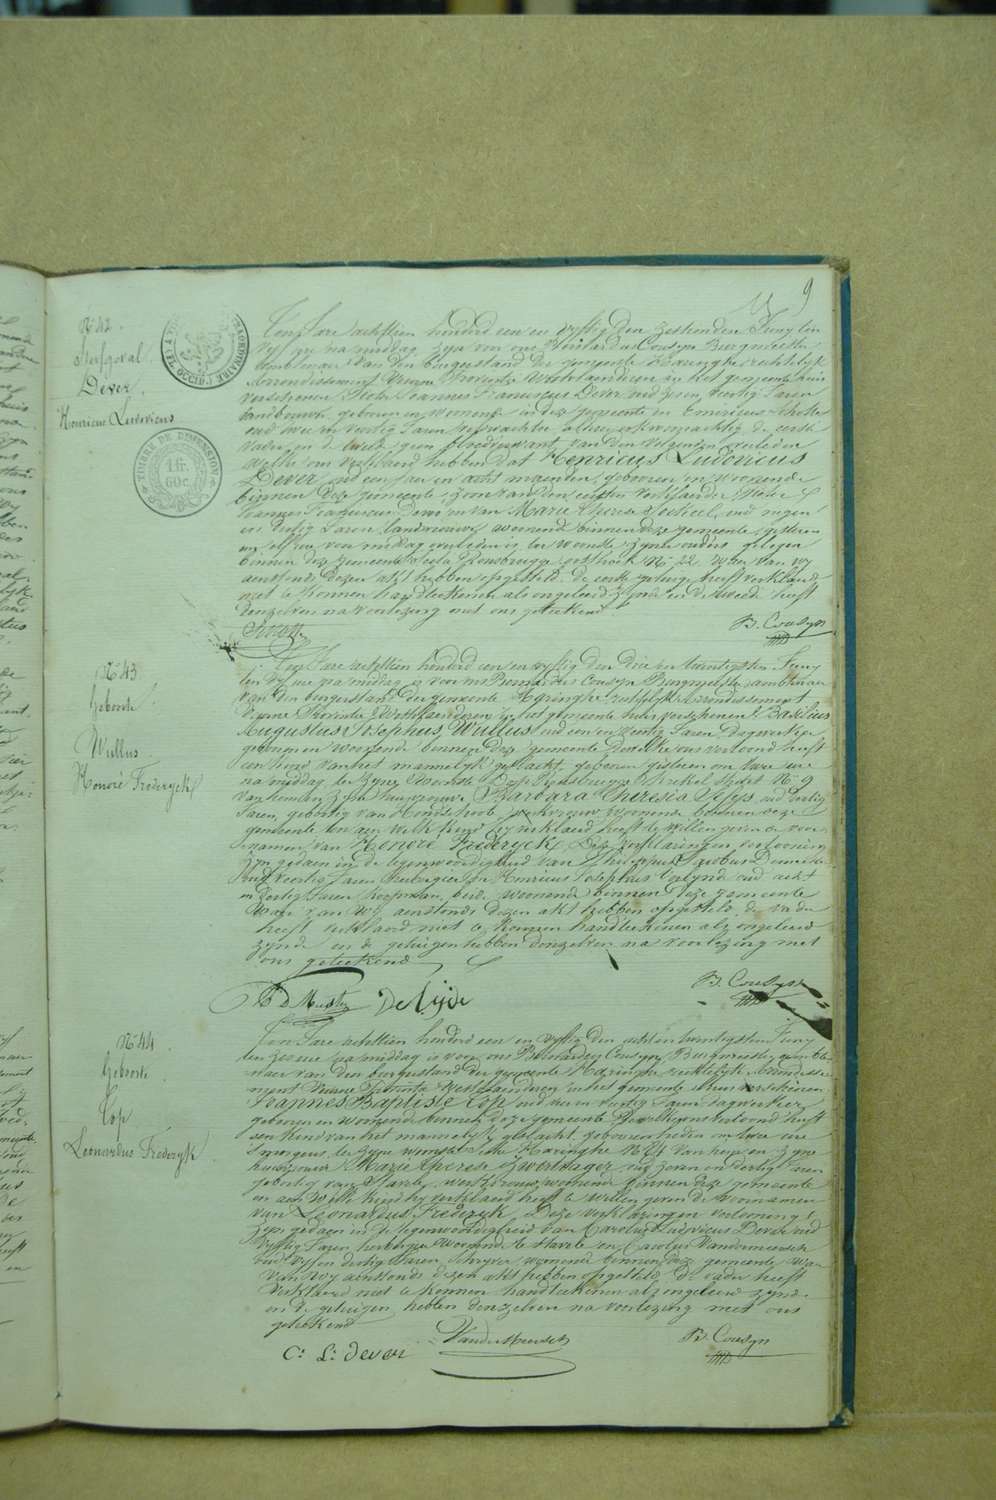 9
N: 42.
Sterfgeval
Dever
Henricus Ludovicus
TIMBRE DE DIMENSION
1 fr.
60c.
Ten Jare achttien honderd een en vyftig den zesthienden Juny ten
vyf ure na middag zyn voor ons Bernardus Cousyn Burgmeester
ambtenaer van den burgerstand der gemeente Haringhe rechtelyk
Arrondissement Veurne Provintie Westvlaenderen in het gemeente huis
verschenen Joannes Franciscus Dever oud zeven veertig Jaren
landbouwer geboren en woonende in deze gemeente en
oud twee en veertig Jaren veldwachter
vader en de tweede geen bloedverwant van den
welke ons verklaerd hebben dat Henricus Ludovicus
Dever oud een Jaer en acht maenden, geboren en woonende
binnen deze gemeente, zoon van den eersten verklaerder
Joannes Franciscus Dever en van Marie Therese oud negen
en dertig Jaren, landbouwster woonende binnen deze gemeente, gisteren
om elf ure voor middag overleden is ter woonste zyner ouders gelegen
binnen deze gemeente N: 22 waer van wy
aenstonds dezen akt hebben opgesteld. de eerste getuige heeft verklaerd
niet te konnen handteekenen als ongeleerd zynde en de tweede heeft
denzelven na voorlezing met ons geteekend
B. Cousyn
N: 43
Geboorte
Wullus
Honoré Frederyck
Ten Jare achttien honderd een en vyftig den drie en twintigsten Juny
ten vyf ure na middag is voor ons Bernardus Cousyn Burgmeester ambtenaer
van den burgerstand der gemeente Haringhe rechtelyk Arrondissement
Veurne Provintie Westvlaenderen in het gemeente huis verschenen Basilius
Augustus Josephus Wullus oud een en veertig Jaren Dagwerker
geboren en woonende binnen deze gemeente Dewelke ons vertoond heeft
een kind van het mannelyk geslacht, geboren gisteren om twee ure
na middag te zyner woonste N: 9
van hem en zyne huisvrouwe Barbara Theresia oud veertig
Jaren, geboortig van Hondschoote, werkvrouw woonende binnen deze
gemeente ten aen welk kind hy verklaerd heeft te willen geven de voor-
namen van Honoré Frederyck. Deze verklaringen vertooning
zyn gedaen in de tegenwoordigheid van Philippus Jacobus Demeester
oud veertig Jaren Herbergier en Henricus Josephus oud acht
en dertig Jaren koopman, beide woonende binnen deze gemeente
Waer van Wy aenstonds dezen akt hebben opgesteld, de vader
heeft verklaerd niet te konnen handteekenen als ongeleerd
zynde en de getuigen hebben denzelven na voorlezing met
ons geteekend
B. Cousyn
N: 44
Geboorte
Cop
Leonardus Frederyk
Ten Jare achttien honderd een en vyftig den acht en twintigsten Juny
ten zes ure na middag is voor ons Bernardus Cousyn Burgmeester ambte-
naer van den burgerstand der gemeente Haringhe rechtelyk Arrondisse-
ment Veurne Provintie Westvlaenderen in het gemeente huis verschenen
Joannes Baptiste Cop oud veertig Jaren dagwerker
geboren en woonende binnen deze gemeente Dewelke ons vertoond heeft
een kind van het mannelyk geslacht, geboren heden om twee ure
's morgens te zyner woonste Haringhe van hem en zyne
huisvrouwe Marie Therese Zwertvager oud zeven en dertig Jaren
geboortig van Stavele, werkvrouw woonende binnen deze gemeente
en aen Welk kind hy verklaerd heeft te willen geven de voornamen
van Leonardus Frederyk. Deze verklaringen vertooning
zyn gedaen in de tegenwoordigheid van Carolus Ludovicus Dever oud
vyftig Jaren herbergier woonende te Stavele en Carolus Vandermeersch
oud vyf en dertig Jaren, schryver woonende binnen deze gemeente, Waer
van Wy aenstonds dezen akt hebben opgesteld. De vader heeft
verklaerd niet te konnen handteekenen als ongeleerd zynde
en de getuigen hebben denzelven na voorlezing met ons
geteekend
C: L: dever
B. Cousyn